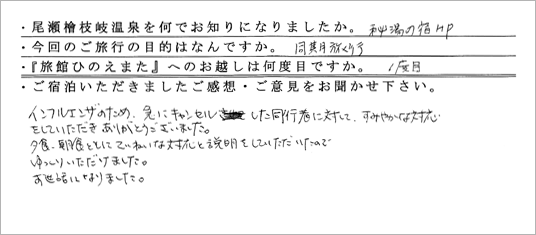 ・尾瀬檜枝岐温泉を何でお知りになりましたか。 秘湯の宿HP
・今回のご旅行の目的はなんですか。 同期旅行
・『旅館ひのえまた』へのお越しは何度目ですか。 1度目
・ご宿泊いただきましたご感想・ご意見をお聞かせ下さい。
インフルエンザのため、急にキャンセルした同行者に対して、すみやかな対応
をしていただきありがとうございました。
夕食、朝食ともにていねいな対応と説明をしていただいたので
ゆっくりいただけました。
お世話になりました。